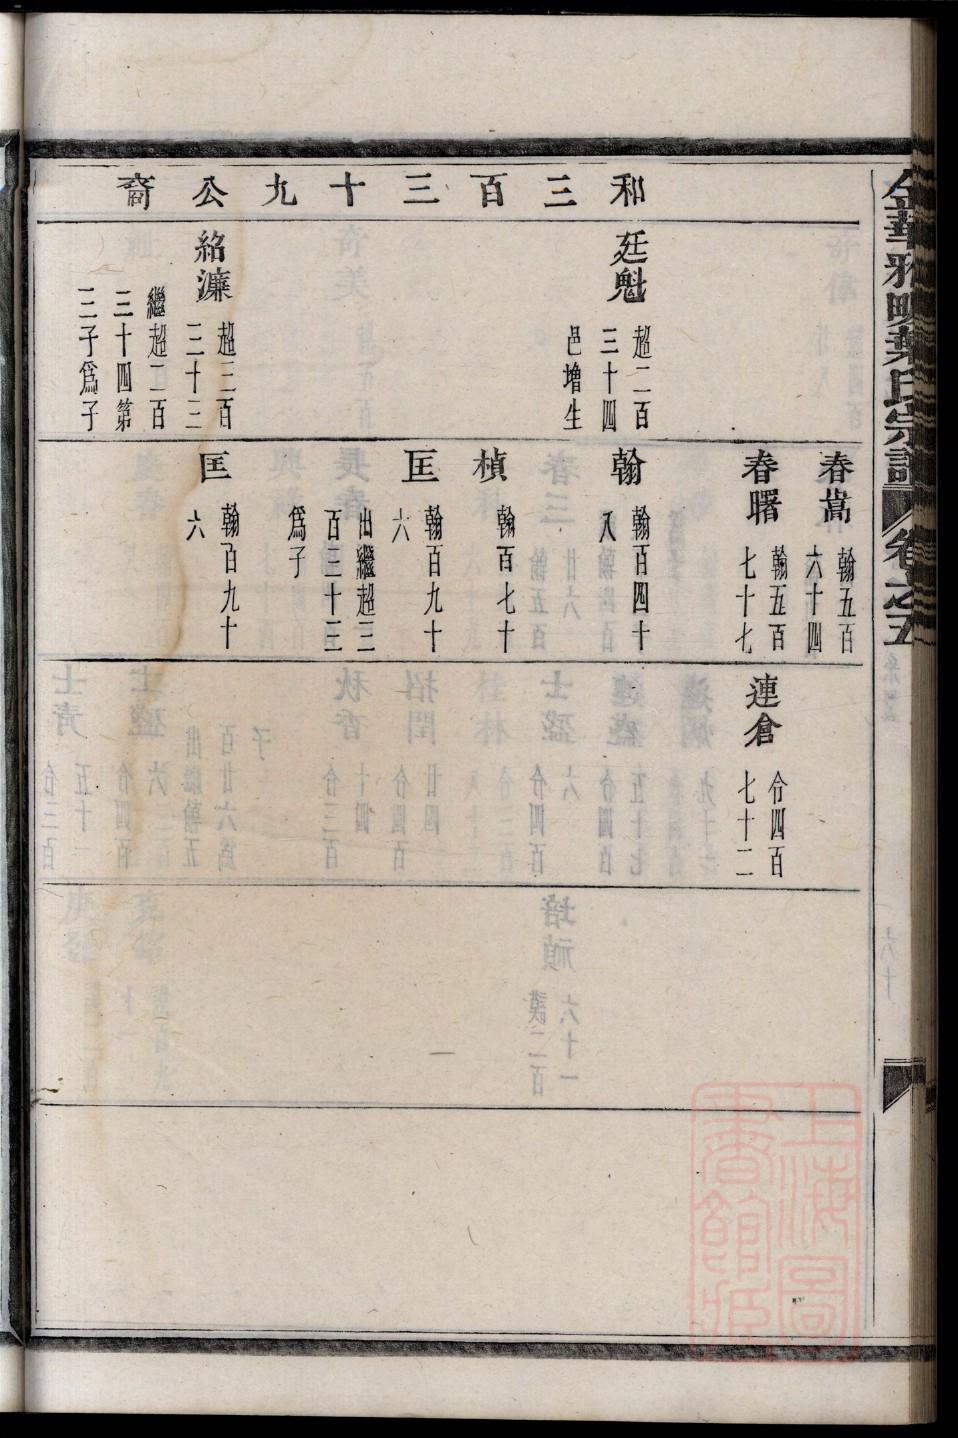 金華雅畈葉氏宗譜
卷之五
和三百三十九公裔
廷魁
超二百
三十四
邑增生
紹濂
超三百
三十三
繼超二百
三十四第
三子爲子
春嵩
翰五百
六十四
春曙
翰五百
七十七
翰
翰百四十
八
楨
翰百七十
匡
翰百九十
六
出繼超三
百三十三
爲子
匡
翰百九十
六
連倉
份四百
七十二
上海圖書館藏